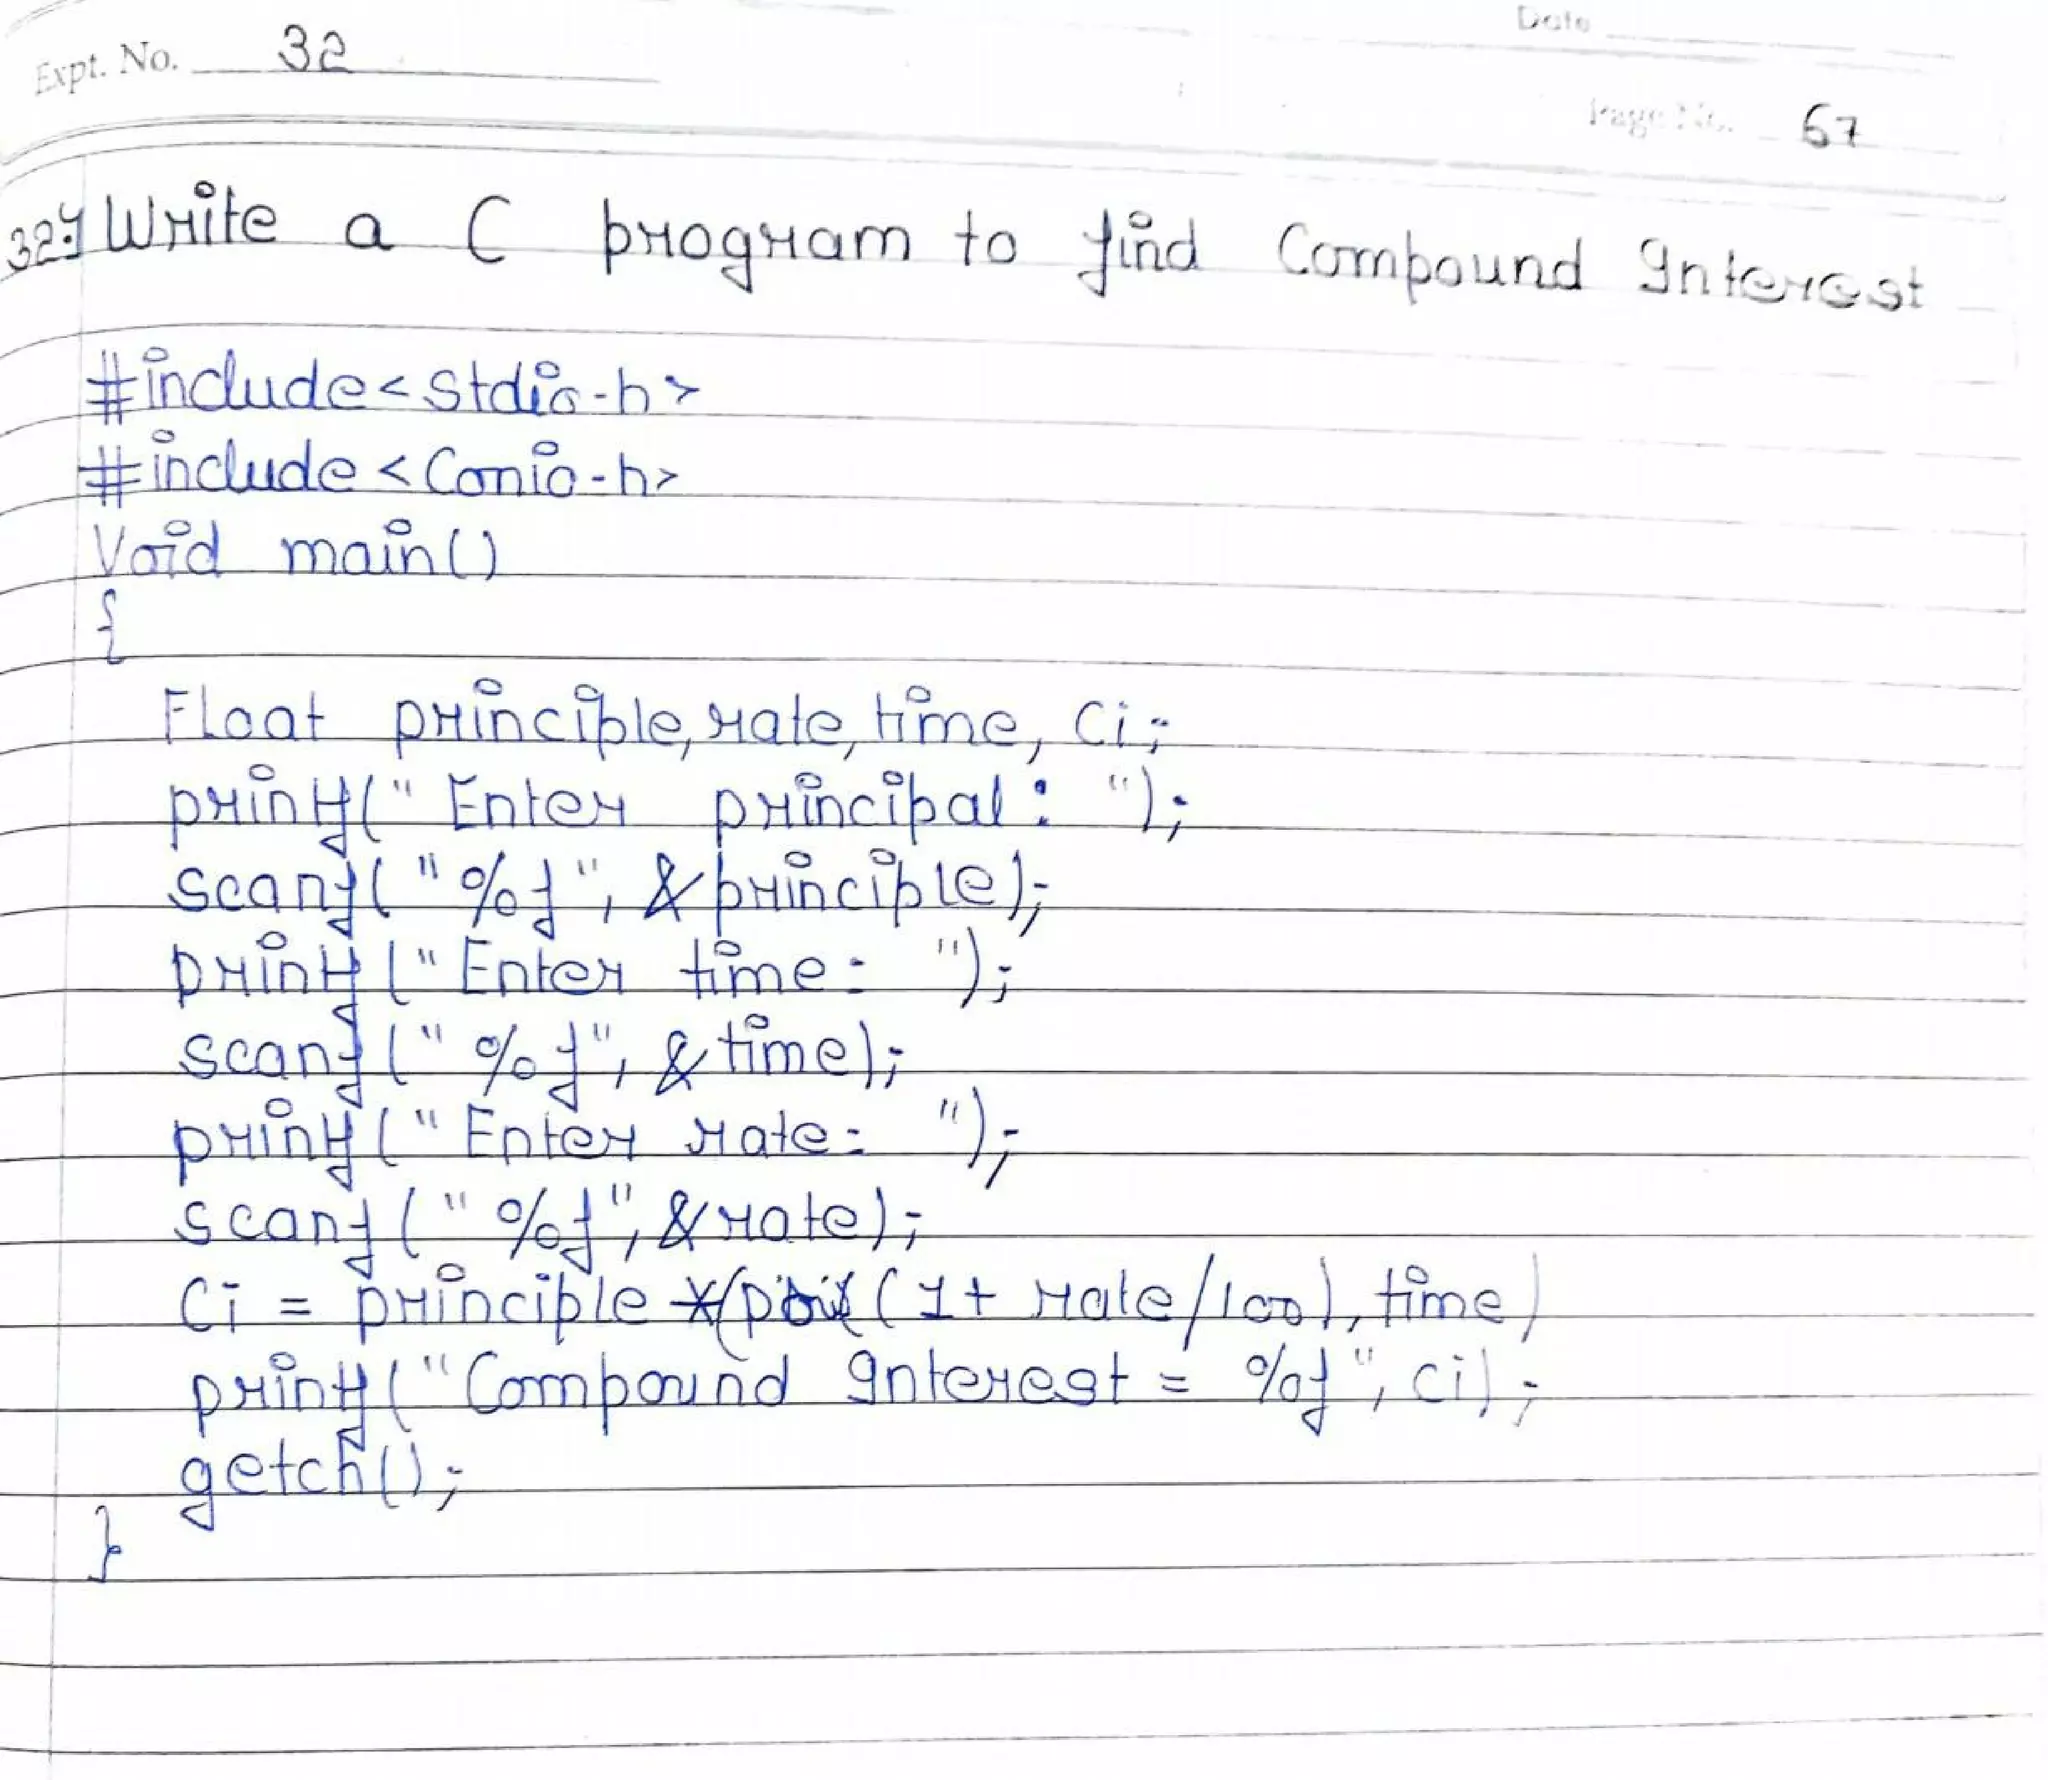 Date
Expt. No. 32
Page No. 67
32:) Write a C program to find Compound Interest
#include<stdio.h>
#include<Conio.h>
Void main()
{
Float principle, rate, time, Ci;
printf("Enter principal: ");
scanf("%f", &principle);
printf("Enter time: ");
scanf("%f", &time);
printf("Enter rate: ");
scanf("%f", &rate);
Ci = principle *( (1+ rate/100), time)
printf("Compound Interest = %f", Ci);
getch();
}